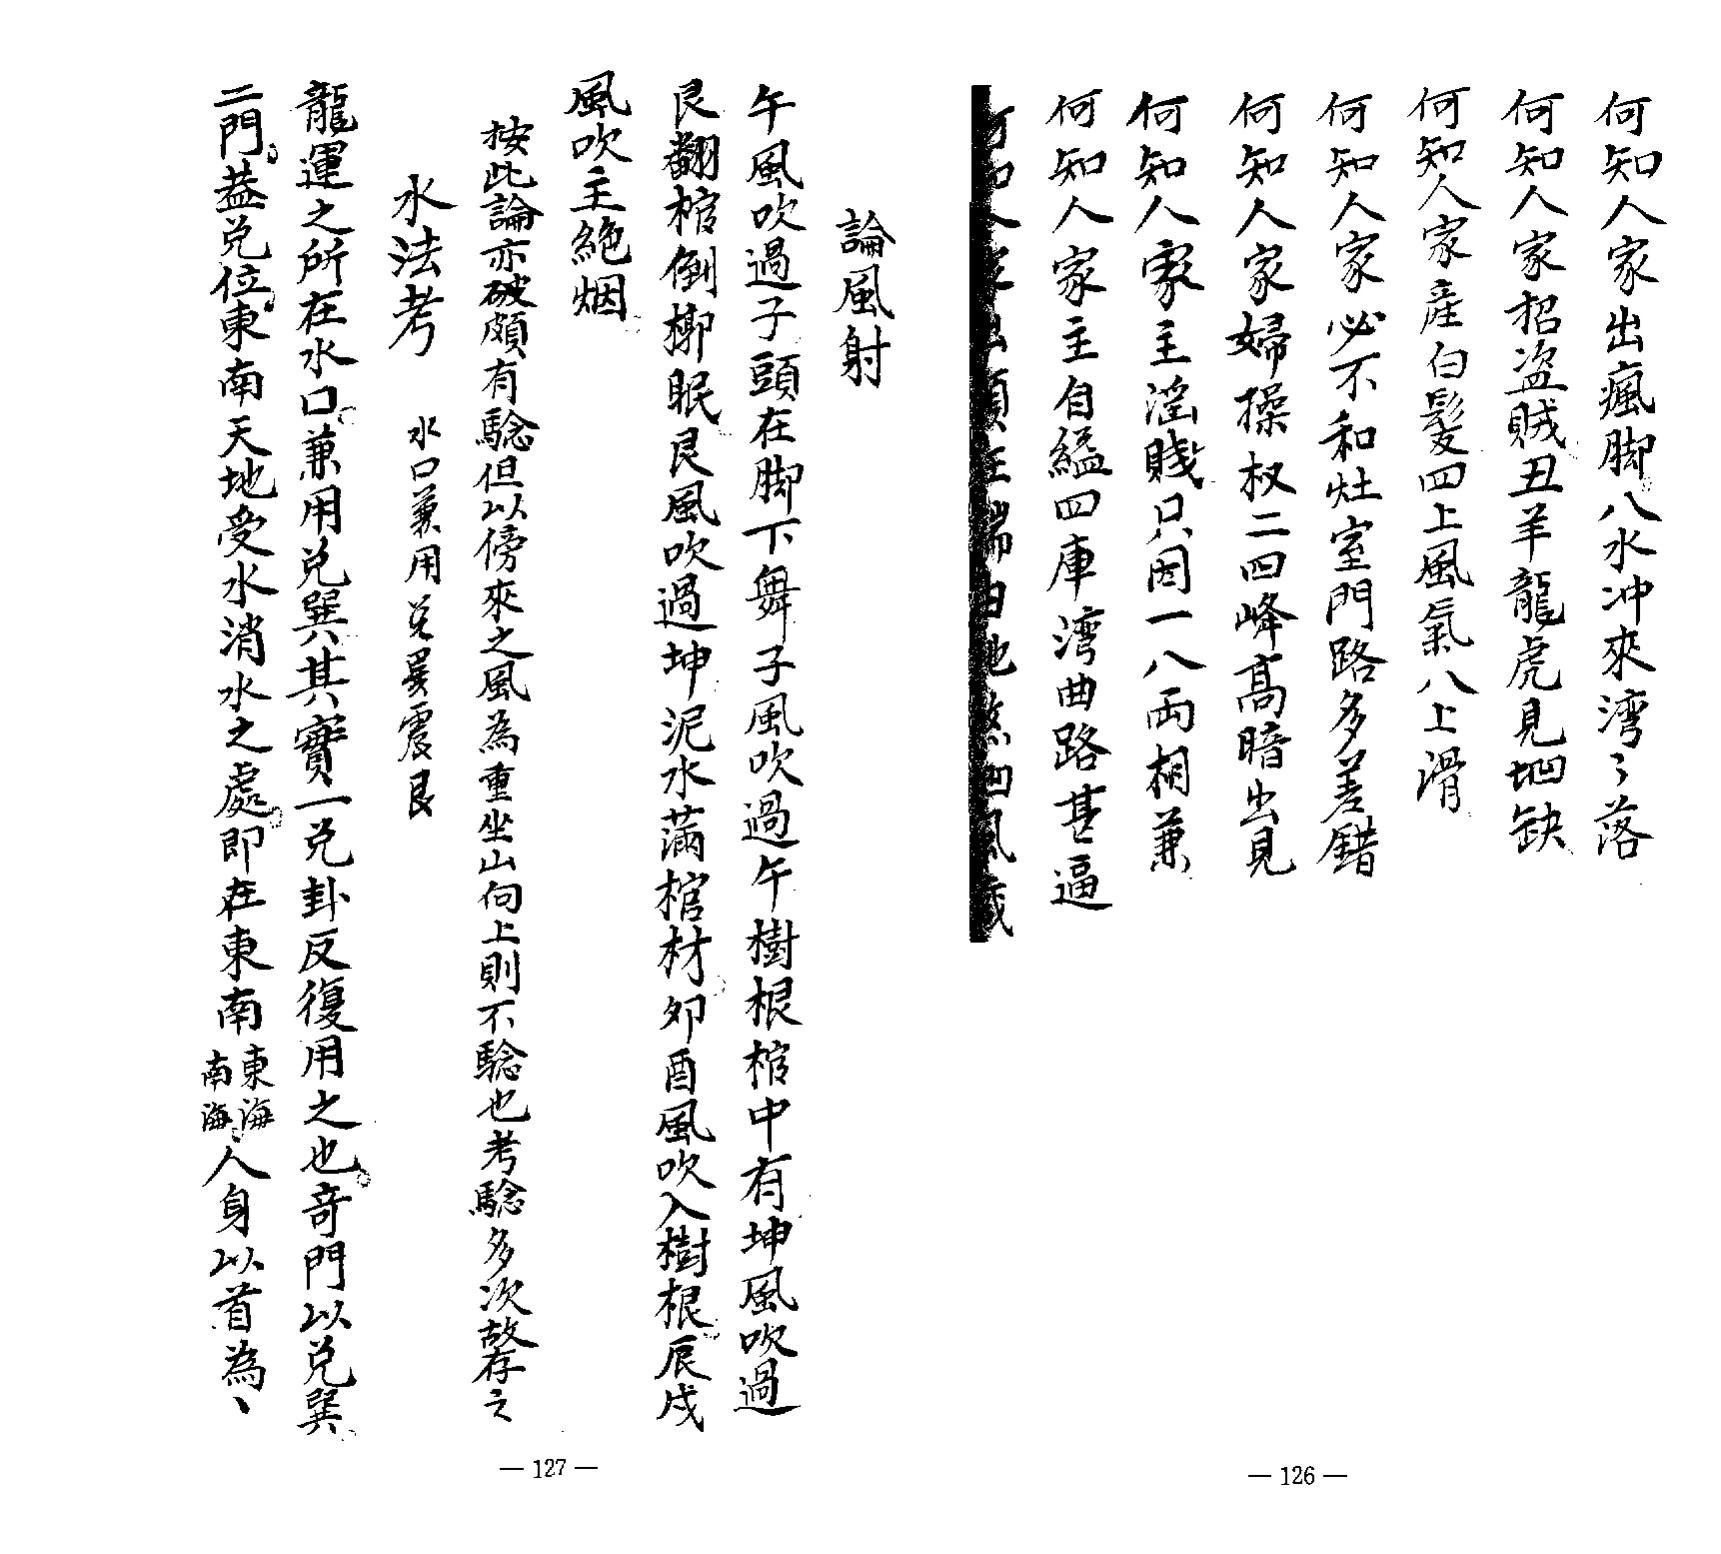 何知人家出瘋脚八水冲來湾〻落
何知人家招盗賊丑羊龍虎見凹缺
何知人家産白髮四上風氣八上滑
何知人家必不和灶室門路多差錯
何知人家婦操权二四峰高暗出見
何知人家主淫賤只因一八両相兼
何知人家主自縊四庫湾曲路甚逼
何知人家
— 126 —
論風射
午風吹過子頭在脚下舞子風吹過午樹根棺中有坤風吹過
艮翻棺倒槨眠艮風吹過坤泥水滿棺材夘酉風吹入樹根辰戌
風吹主絶烟
按此論亦破頗有騐但以傍來之風為重坐山向上則不騐也考騐多次故存之
水法考 水口兼用兑巽震艮
龍運之所在水口兼用兑巽其實一兑卦反復用之也竒門以兑巽
二門葢兑位東南天地受水消水之處即在東南東海南海人身以首為、
— 127 —